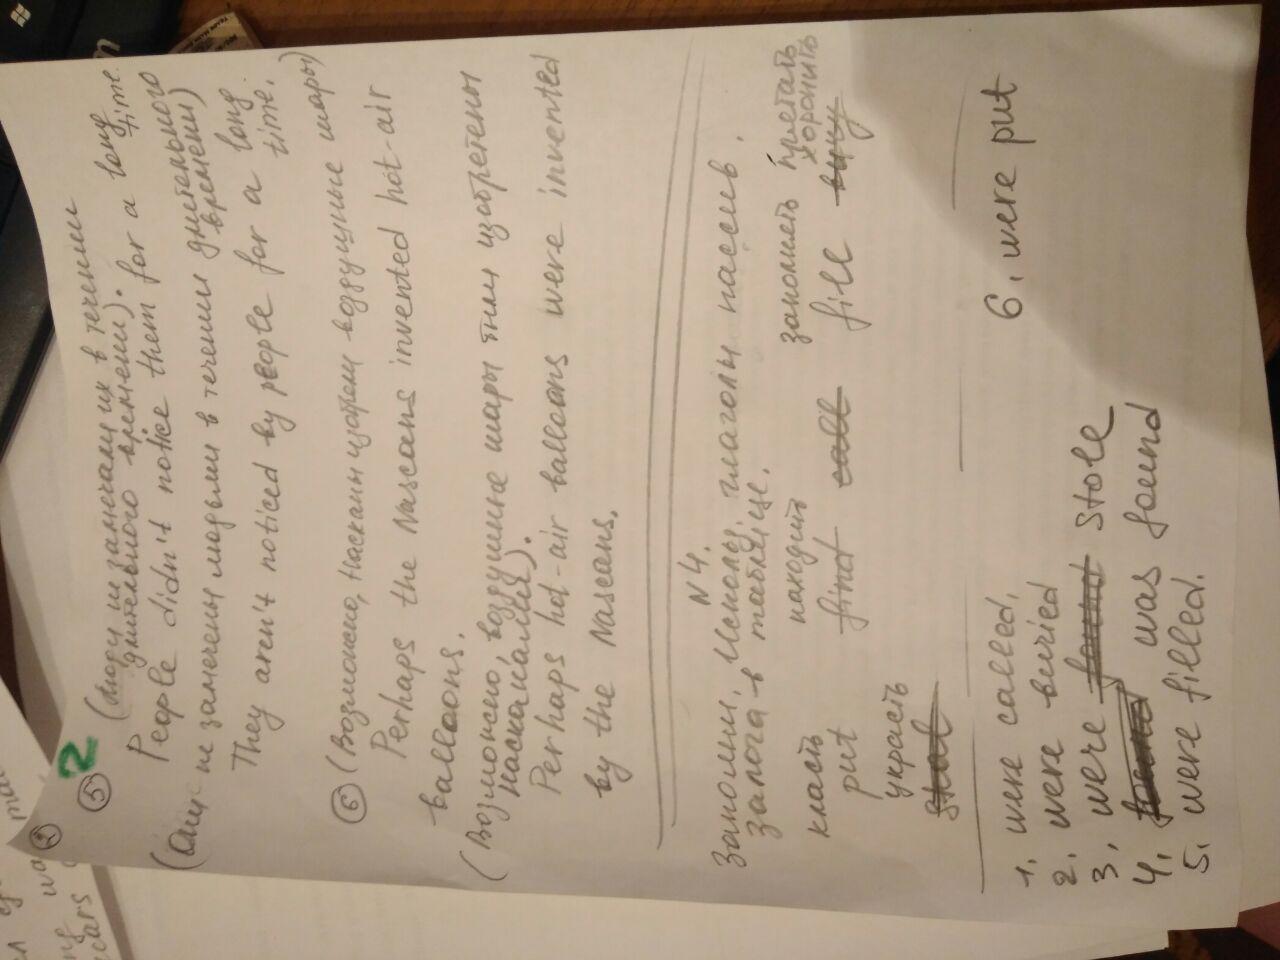 2
⑤ (Люди не замечали их в течении
длительного времени).
People didn't notice them for a long
time.
(Они не замечены людьми в течении длительного
времени)
They aren't noticed by people for a long
time.
⑥ (Возможно, Насканы изобрели воздушные шары)
Perhaps the Nascans invented hot-air
balloons.
(Возможно, воздушные шары были изобретены
насканами).
Perhaps hot-air balloons were invented
by the Nascans.
N4.
Заполни. Использ. глаголы пассив.
залога в таблице.
класть находить заполнять прятать
хоронить
put find call fill bury
украсть
steal
1. were called.
2. were buried
3. were found stole
4. found was found
5. were filled.
6. were put